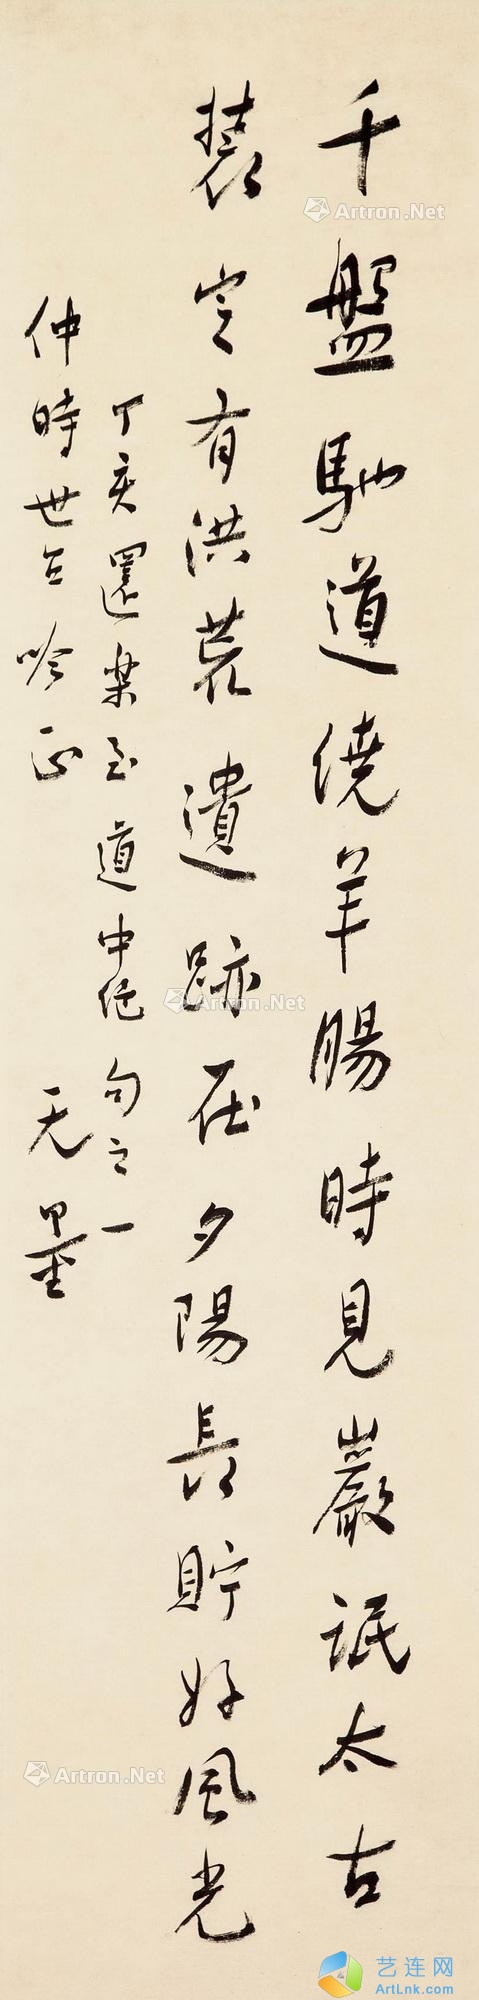 千盤馳道繞羊腸時見巖氓太古
裝定有洪荒遺跡在夕陽長貯好風光
丁亥還樂至道中絕句之一
仲時世兄吟正 无量
Artron.Net
Artron.Net
Artron.Net
艺连网
ArtLnk.com